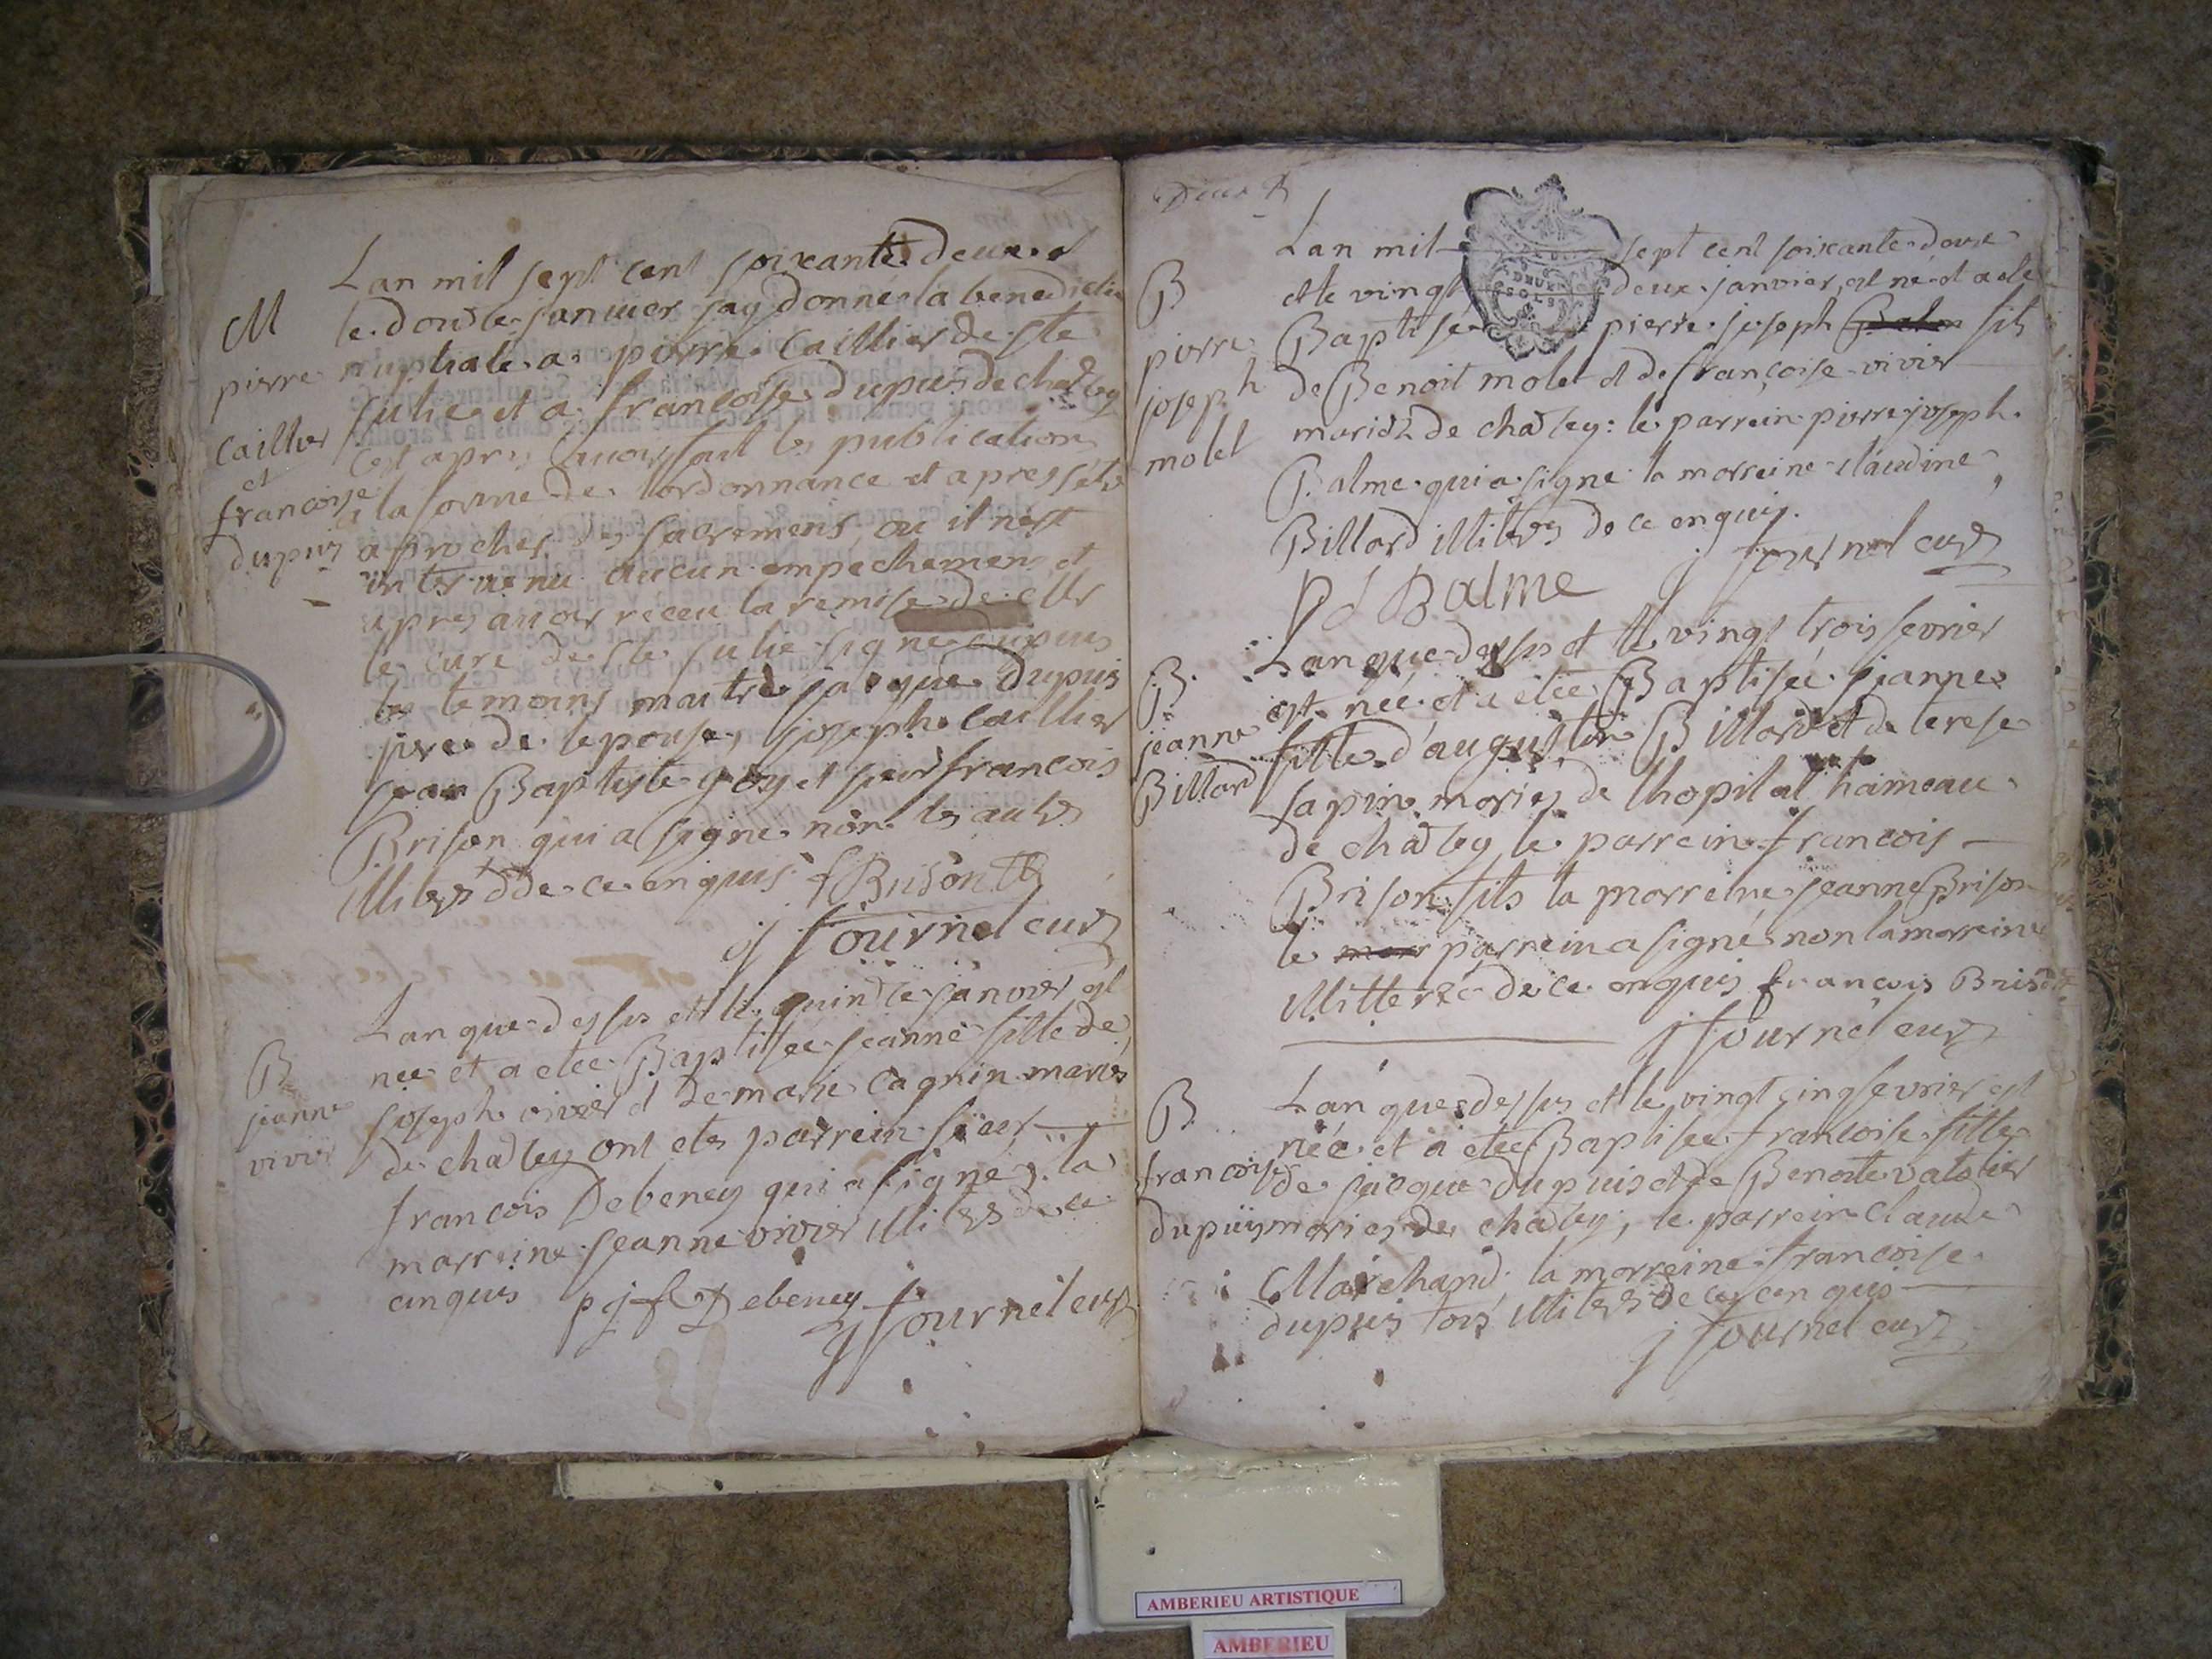 Lan mil sept cent soixante deux et
M
le douze janvier jay donne la benediction
pierre
nuptiale a pierre Caillier de ste
julie et a francoise dupuis de chazey
Caillier
cest apres avoir fait les publications
et
francoise
a la forme de lordonnance et apres sêtre
dupuis
aprocher des sacremens, ou il nest
intervenu aucun empechemens et
apres avoir receu la remise de
le cure de ste julie signe dupuis
les temoins maitre jacque dupuis
pere de lepouse, joseph Caillier
jean Baptiste goy et francois
Brison qui a signe non les autres
illiteres de ce enquis f Brison
j fournel curé
Lan que dessus et le quindze janvier est
B
nee et a etee Baptisée jeanne fille de
jeanne
joseph vivier et de marie Cagnin mariés
vivier
de chazey ont ete parrein sieur
francois Debeney qui a signé la
marreine jeanne vivier illiteres de ce
enquis p j f Debeney j fournel curé
Deux
Lan mil sept cent soixante deux
B
et le vingt deux janvier est né et a ete
pierre
Baptisé pierre joseph fils
joseph
de Benoit molet et de françoise vivier
molet
mariez de chazey: le parrein pierre joseph
Balme qui a signe la marreine claudine
Billard illiteres de ce enquis.
j fournel curé
P J Balme
Lan que dessus et le vingt trois fevrier
B.
est née et a étée Baptisée jeanne
jeanne
fille d'augustin Billard et de terese
Billard
sapin mariés de lhopital hameau
de chazey le parrein francois
Brison fils la marreine jeanne Brison
le parrein a signé non la marreine
illitterée de ce enquis francois Brison
j fournel curé
B
Lan que dessus et le vingt cinq fevrier est
née et a étée Baptisée francoise fille
francoise
de jacque dupuis et de Benoite
dupuis
mariés de chazey, le parrein Claude
Marchand, la marreine francoise
dupuis tous illiteres de ce enquis
j fournel curé
DEUX
SOLS
AMBERIEU ARTISTIQUE
AMBERIEU